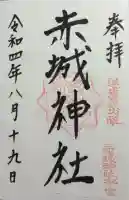 奉拝
赤城神社
令和四年八月十九日